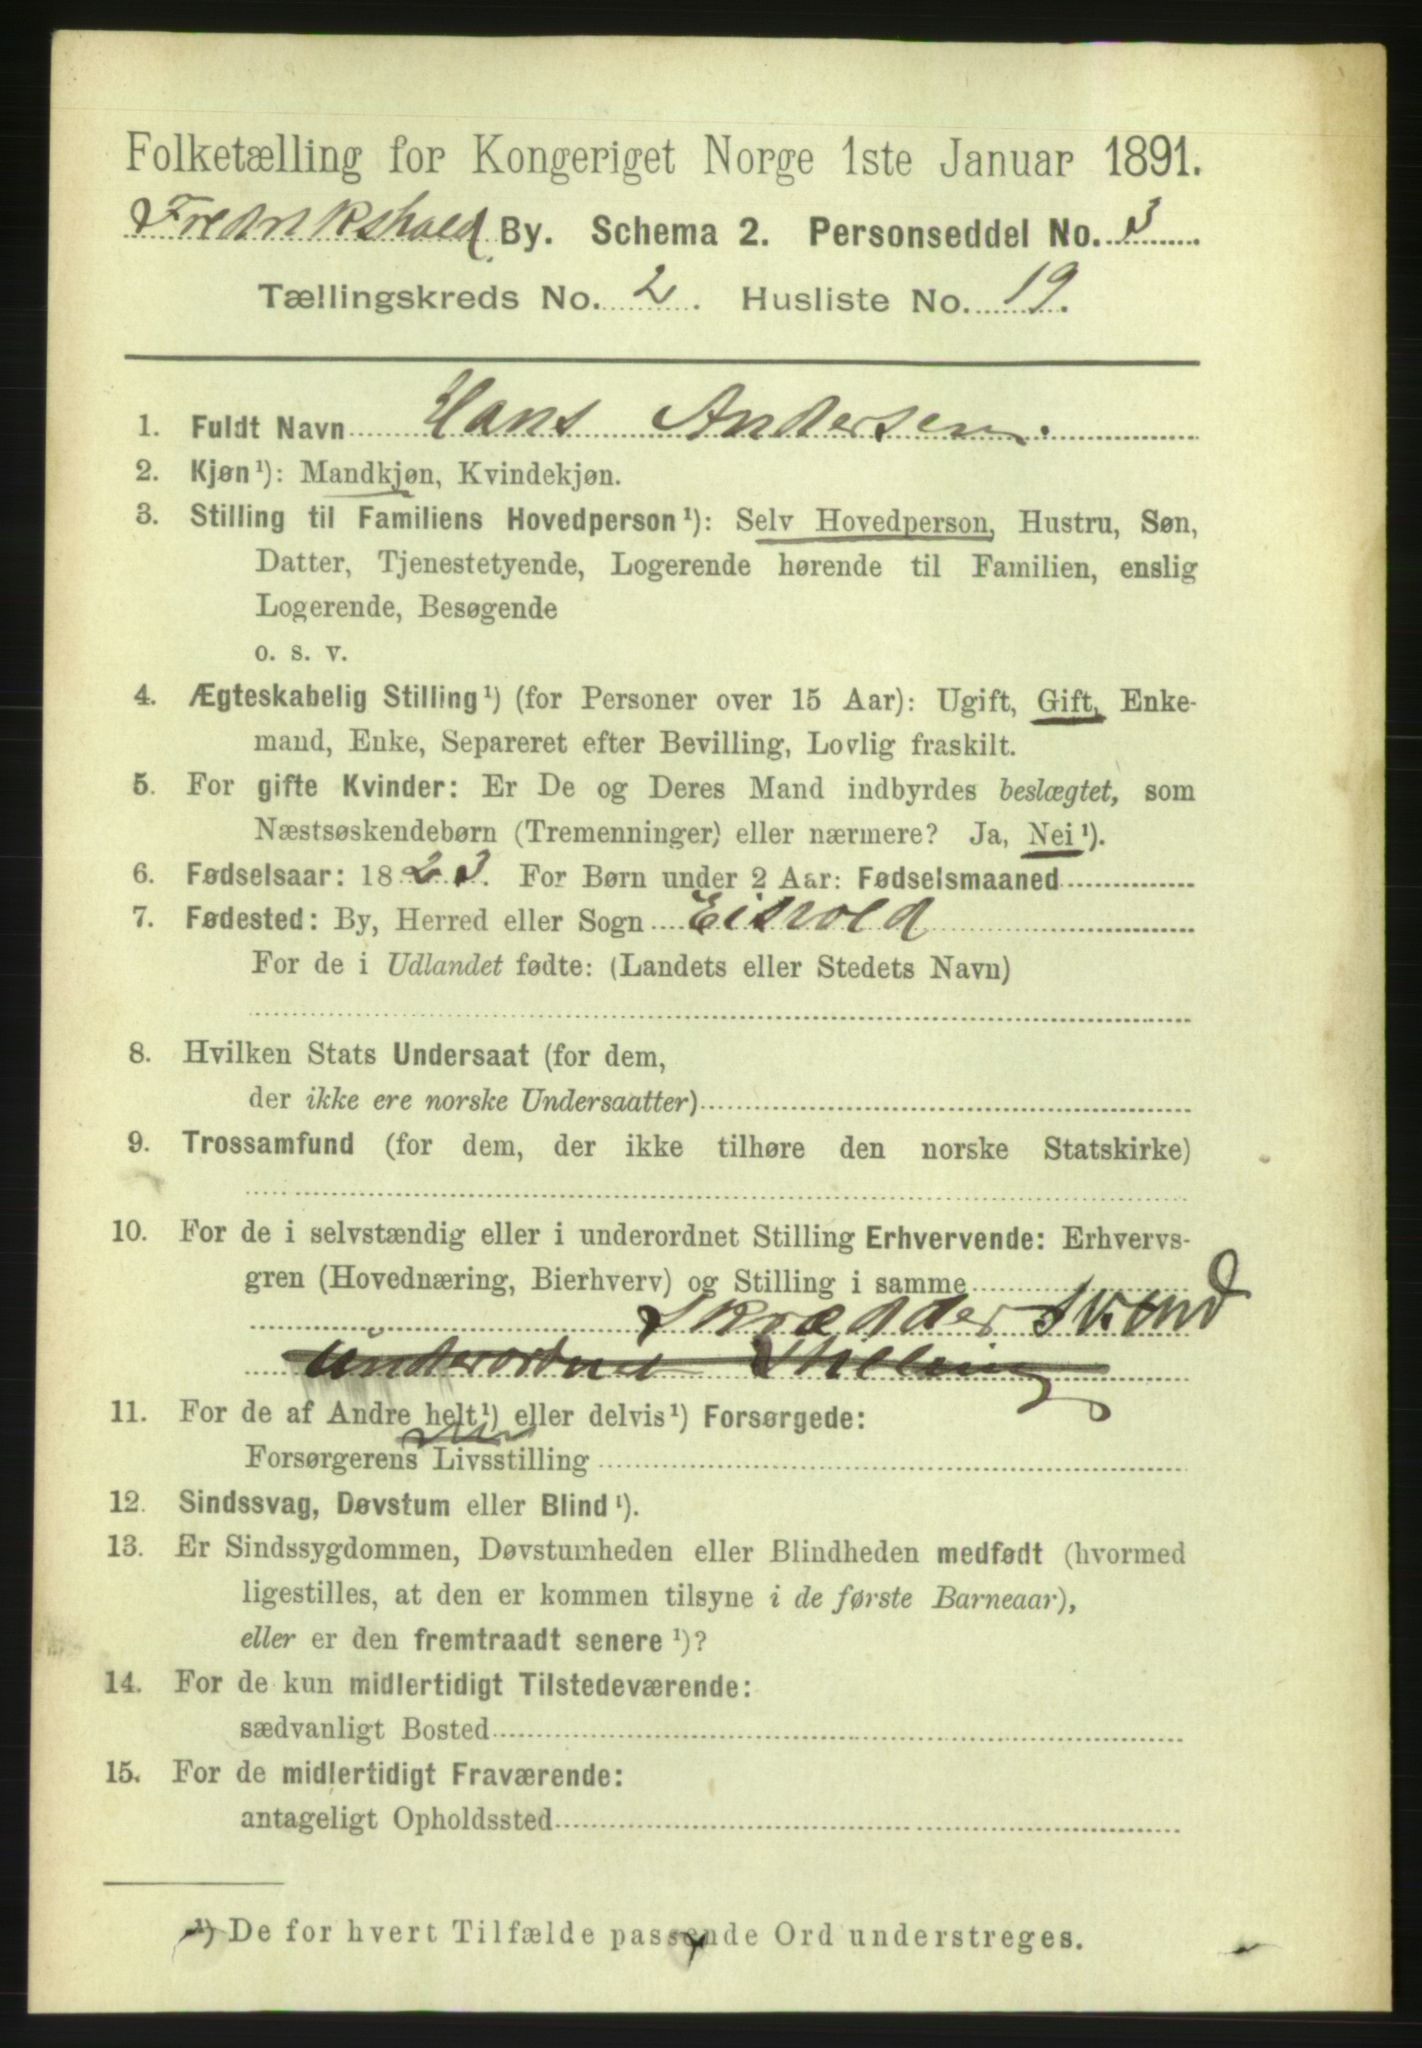 Folketælling for Kongeriget Norge 1ste Januar 1891.
Fredrikshald By. Schema 2. Personseddel No. 3
Tællingskreds No. 2. Husliste No. 19.
1. Fuldt Navn Hans Andersen.
2. Kjøn¹): Mandkjøn, Kvindekjøn.
3. Stilling til Familiens Hovedperson¹): Selv Hovedperson, Hustru, Søn,
Datter, Tjenestetyende, Logerende hørende til Familien, enslig
Logerende, Besøgende
o. s. v.
4. Ægteskabelig Stilling¹) (for Personer over 15 Aar): Ugift, Gift, Enke-
mand, Enke, Separeret efter Bevilling, Lovlig fraskilt.
5. For gifte Kvinder: Er De og Deres Mand indbyrdes beslægtet, som
Næstsøskendebørn (Tremenninger) eller nærmere? Ja, Nei¹).
6. Fødselsaar: 1823. For Børn under 2 Aar: Fødselsmaaned
7. Fødested: By, Herred eller Sogn Eisvold
For de i Udlandet fødte: (Landets eller Stedets Navn)
8. Hvilken Stats Undersaat (for dem,
der ikke ere norske Undersaatter)
9. Trossamfund (for dem, der ikke tilhøre den norske Statskirke)
10. For de i selvstændig eller i underordnet Stilling Erhvervende: Erhvervs-
gren (Hovednæring, Bierhverv) og Stilling i samme
Skrædder
underordnet Stilling
11. For de af Andre helt¹) eller delvis¹) Forsørgede:
Forsørgerens Livsstilling
12. Sindssvag, Døvstum eller Blind¹).
13. Er Sindssygdommen, Døvstumheden eller Blindheden medfødt (hvormed
ligestilles, at den er kommen tilsyne i de første Barneaar),
eller er den fremtraadt senere¹)?
14. For de kun midlertidigt Tilstedeværende:
sædvanligt Bosted
15. For de midlertidigt Fraværende:
antageligt Opholdssted
¹) De for hvert Tilfælde passende Ord understreges.